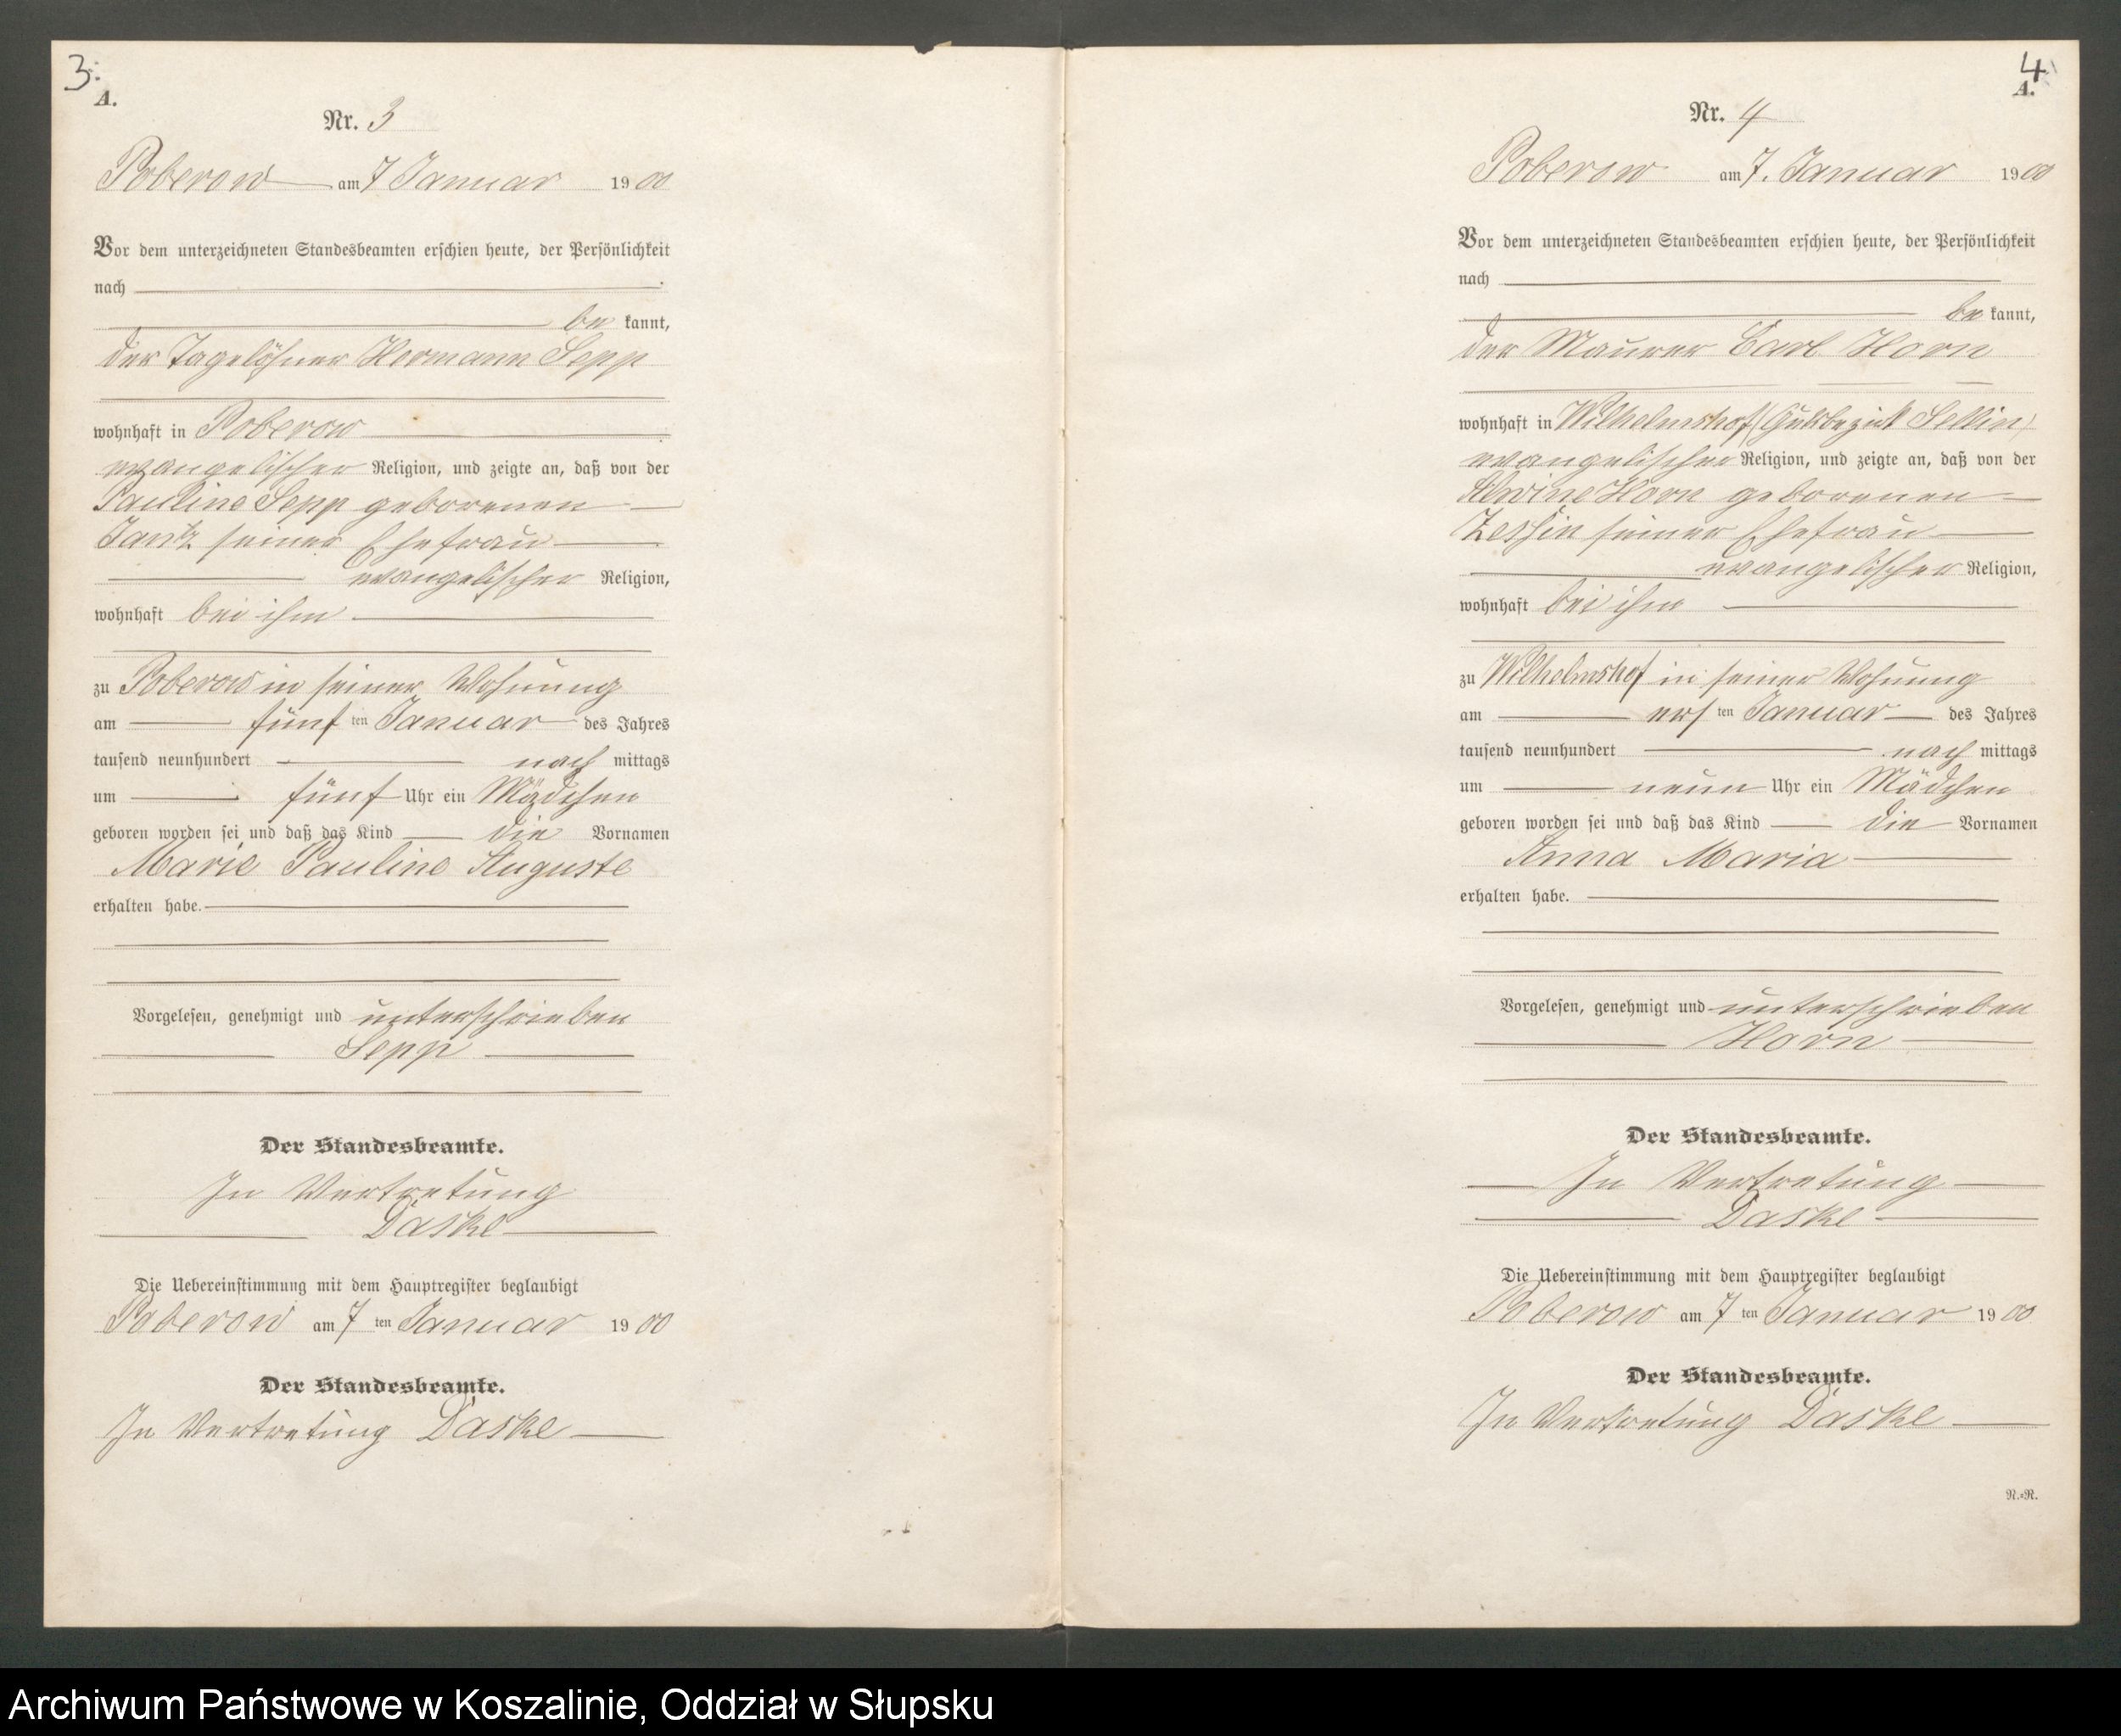 3.
A.
Nr. 3
Poberow am 7 Januar 1900
Vor dem unterzeichneten Standesbeamten erschien heute, der Persönlichkeit
nach
be kannt,
der Tagelöhner Hermann Sepp
wohnhaft in Poberow
evangelischer Religion, und zeigte an, daß von der
Pauline Sepp geborenen
Jantz seiner Ehefrau
evangelischer Religion,
wohnhaft bei ihm
zu Poberow in seiner Wohnung
am fünf ten Januar des Jahres
tausend neunhundert nach mittags
um fünf Uhr ein Mädchen
geboren worden sei und daß das Kind die Vornamen
Marie Pauline Auguste
erhalten habe.
Vorgelesen, genehmigt und unterschrieben
Sepp
Der Standesbeamte.
In Vertretung
Daske
Die Uebereinstimmung mit dem Hauptregister beglaubigt
Poberow am 7 ten Januar 1900
Der Standesbeamte.
In Vertretung Daske
4
A.
Nr. 4
Poberow am 7. Januar 1900
Vor dem unterzeichneten Standesbeamten erschien heute, der Persönlichkeit
nach
be kannt,
der Maurer Carl Horn
wohnhaft in Wilhelmshof (Gutsbezirk Sellin)
evangelischer Religion, und zeigte an, daß von der
Alwine Horn geborenen
Zessin seiner Ehefrau
evangelischer Religion,
wohnhaft bei ihm
zu Wilhelmshof in seiner Wohnung
am ers ten Januar des Jahres
tausend neunhundert nach mittags
um neun Uhr ein Mädchen
geboren worden sei und daß das Kind die Vornamen
Anna Maria
erhalten habe.
Vorgelesen, genehmigt und unterschrieben
Horn
Der Standesbeamte.
In Vertretung
Daske
Die Uebereinstimmung mit dem Hauptregister beglaubigt
Poberow am 7 ten Januar 1900
Der Standesbeamte.
In Vertretung Daske
N.=R.
Archiwum Państwowe w Koszalinie, Oddział w Słupsku